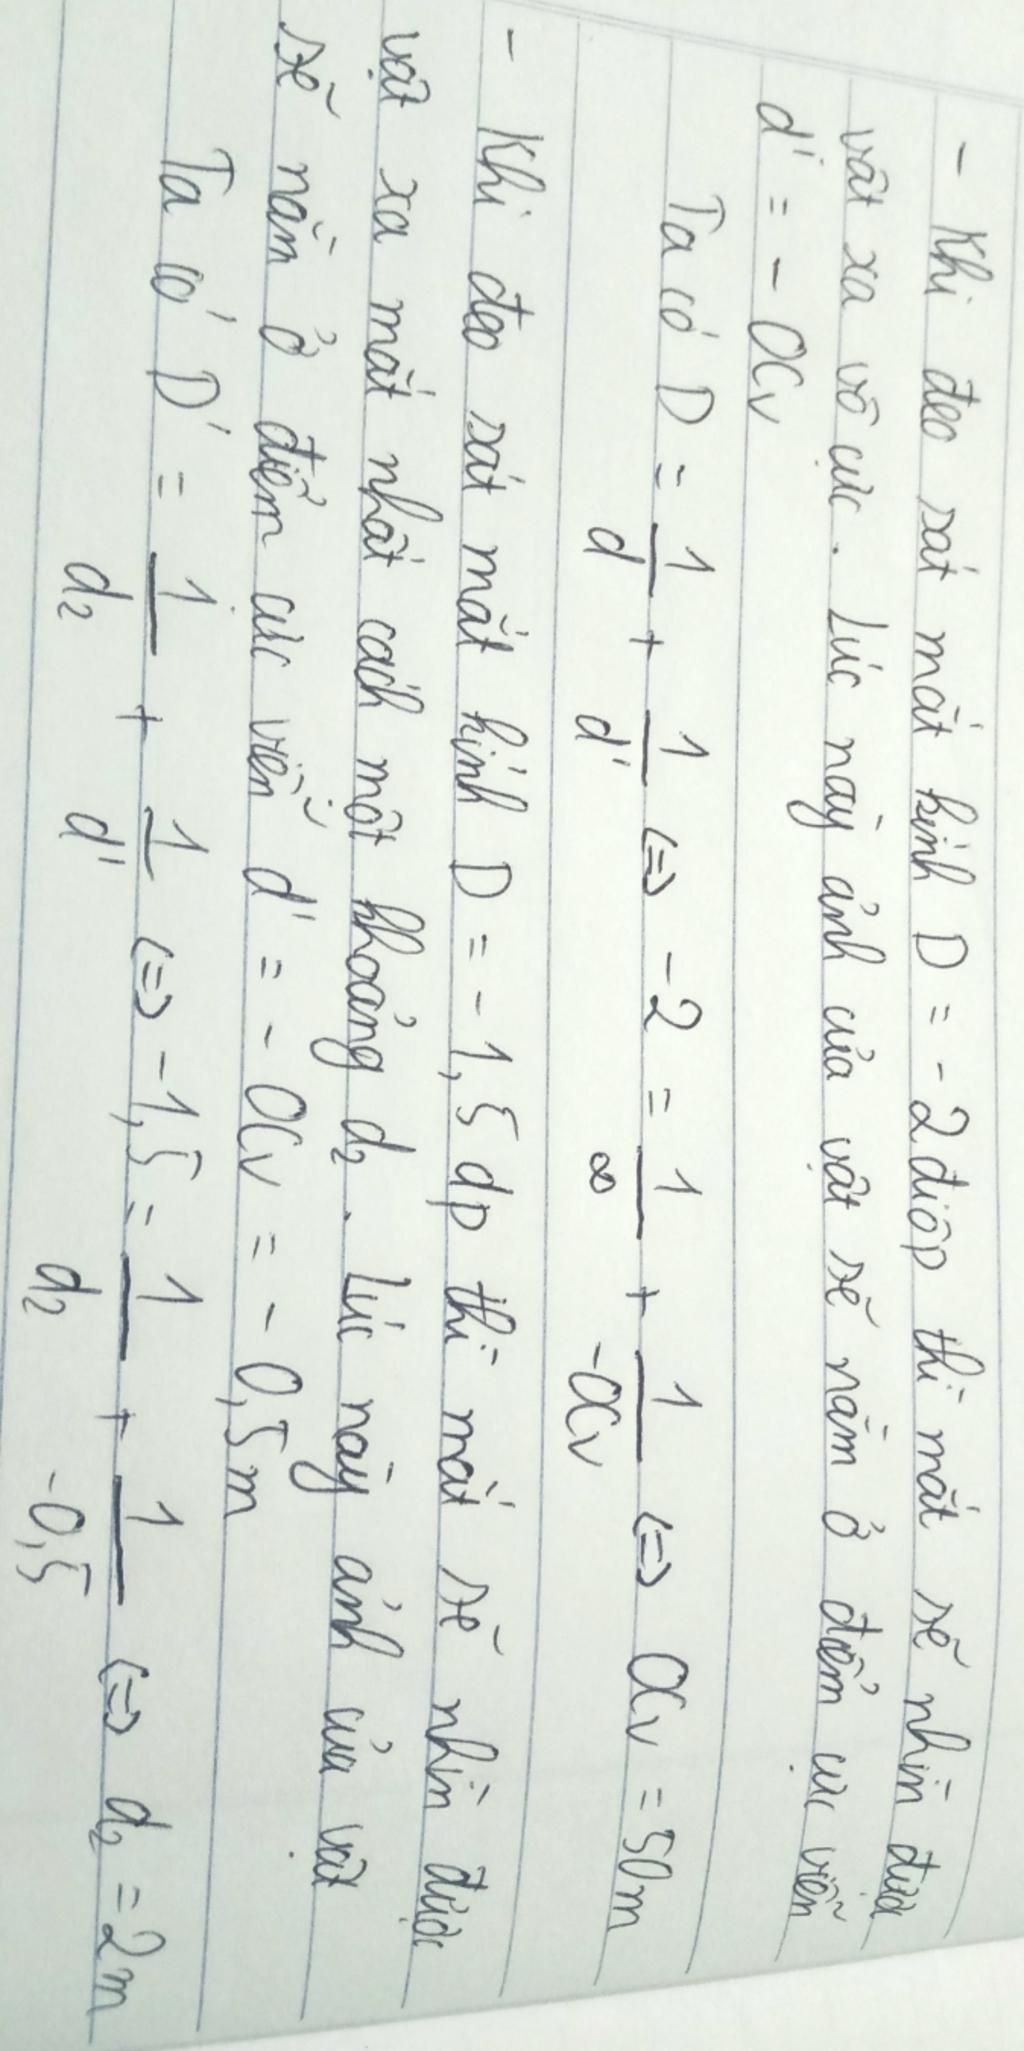 - Khi đeo sát mắt kính D = -2 điôp thì mắt sẽ nhìn được
vật xa vô cực. Lúc này ảnh của vật sẽ nằm ở điểm cực viễn
d' = - OCv
Ta có D = 1/d + 1/d' <=> -2 = 1/∞ + 1/-OCv <=> OCv = 50m
- Khi đeo sát mắt kính D = -1,5 dp thì mắt sẽ nhìn được
vật xa mắt nhất cách một khoảng d₂. Lúc này ảnh của vật
sẽ nằm ở điểm cực viễn d' = - OCv = - 0,5m
Ta có D' = 1/d₂ + 1/d' <=> -1,5 = 1/d₂ + 1/-0,5 <=> d₂ = 2m